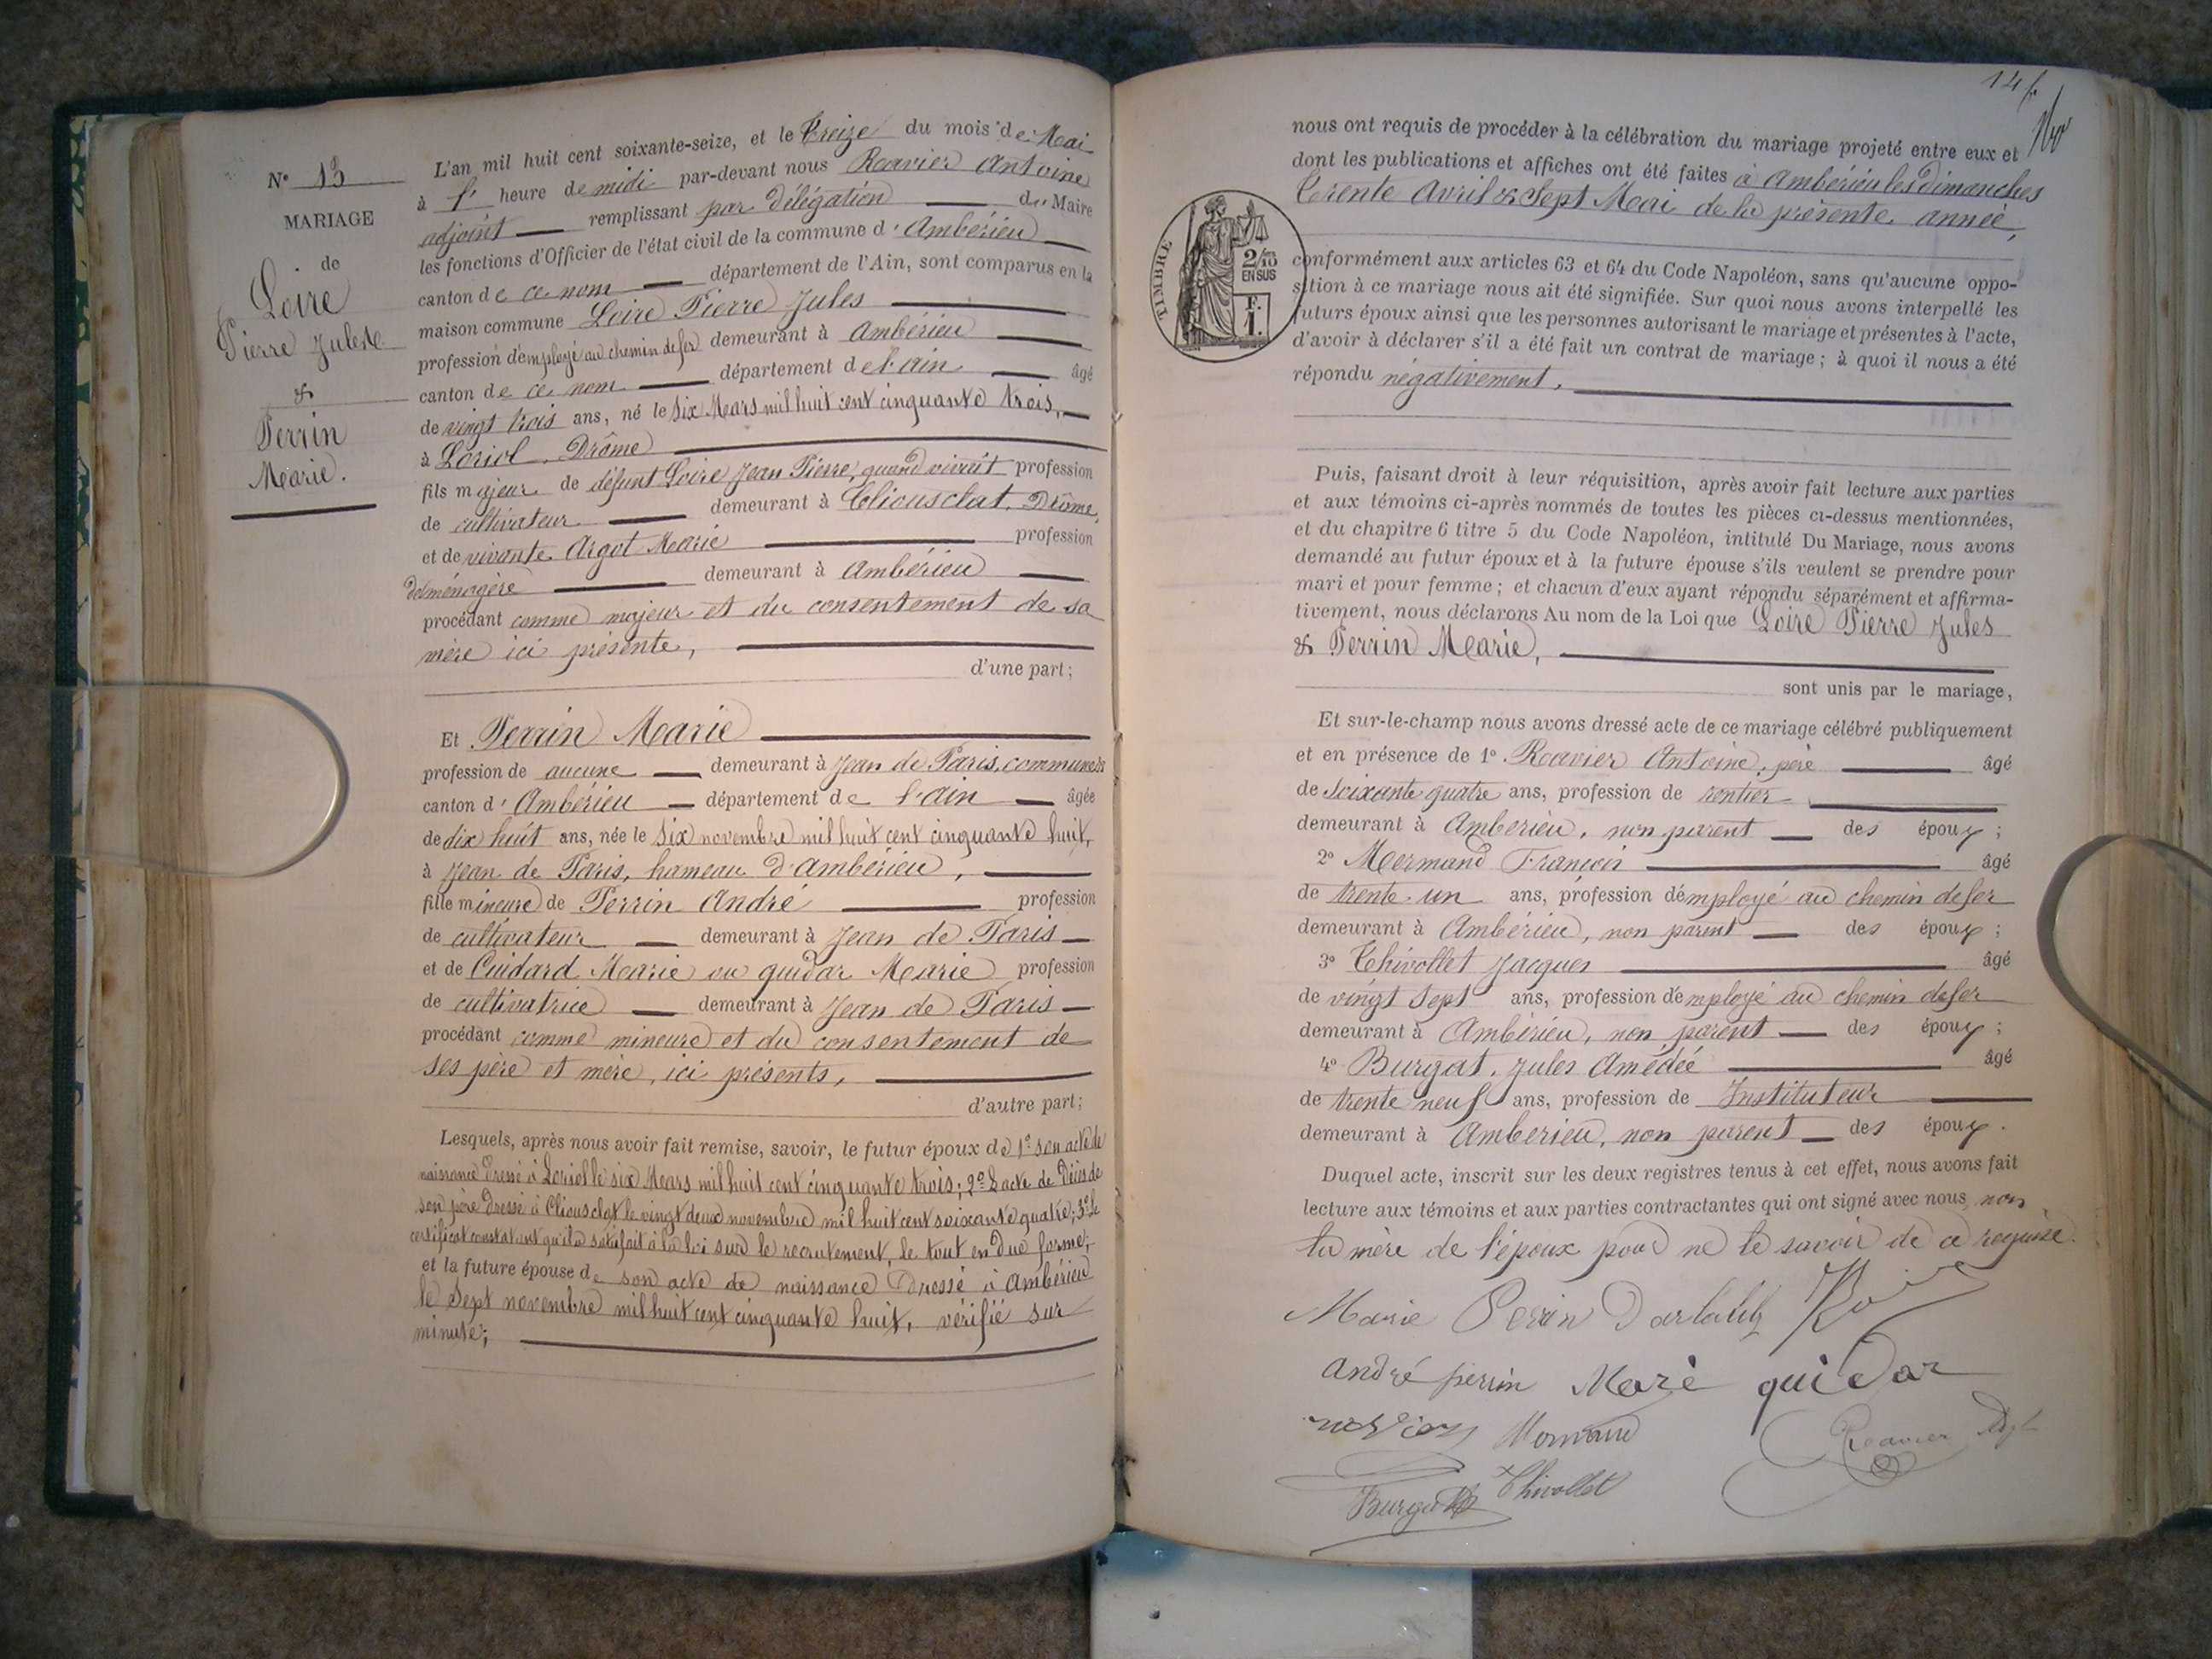 N° 13
MARIAGE
de
Loire
Pierre Jules
&
Perrin
Marie.
L'an mil huit cent soixante-seize, et le Treize du mois de Mai
à l' heure de midi par-devant nous Ravier Antoine
adjoint remplissant par délégation du Maire
les fonctions d'Officier de l'état civil de la commune d'Ambérieu
canton de ce nom département de l'Ain, sont comparus en la
maison commune Loire Pierre Jules
profession d'employé au chemin de fer demeurant à Ambérieu
canton de ce nom département de l'ain âgé
de vingt trois ans, né le six Mars mil huit cent cinquante trois,
à Loriol, Drôme
fils majeur de défunt Loire Jean Pierre, quand vivait profession
de cultivateur demeurant à Cliousclat, Drôme,
et de vivante Argot Marie profession
de ménagère demeurant à Ambérieu
procédant comme majeur et du consentement de sa
mère ici présente,
d'une part;
Et Perrin Marie
profession de aucune demeurant à Jean de Paris, commune &
canton d'Ambérieu département de l'ain âgée
de dix huit ans, née le six novembre mil huit cent cinquante huit,
à Jean de Paris, hameau d'Ambérieu,
fille mineure de Perrin André profession
de cultivateur demeurant à Jean de Paris
et de Cuidard Marie ou guidar Marie profession
de cultivatrice demeurant à Jean de Paris
procédant comme mineure et du consentement de
ses père et mère, ici présents,
d'autre part;
Lesquels, après nous avoir fait remise, savoir, le futur époux de 1° son acte de
naissance dressé à Loriol le six Mars mil huit cent cinquante trois; 2° L'acte de Décès de
son père dressé à Cliousclat le vingt deux novembre mil huit cent soixante quatre; 3° le
certificat constatant qu'il a satisfait à la loi sur le recrutement, le tout en due forme;
et la future épouse de son acte de naissance Dressé à Ambérieu
le Sept novembre mil huit cent cinquante huit, vérifié sur
minute;
14
nous ont requis de procéder à la célébration du mariage projeté entre eux et
dont les publications et affiches ont été faites à Ambérieu les dimanches
Trente Avril & Sept Mai de la présente année,
TIMBRE
2/10
EN SUS
F.
1.
conformément aux articles 63 et 64 du Code Napoléon, sans qu'aucune oppo-
sition à ce mariage nous ait été signifiée. Sur quoi nous avons interpellé les
futurs époux ainsi que les personnes autorisant le mariage et présentes à l'acte,
d'avoir à déclarer s'il a été fait un contrat de mariage; à quoi il nous a été
répondu négativement.
Puis, faisant droit à leur réquisition, après avoir fait lecture aux parties
et aux témoins ci-après nommés de toutes les pièces ci-dessus mentionnées,
et du chapitre 6 titre 5 du Code Napoléon, intitulé Du Mariage, nous avons
demandé au futur époux et à la future épouse s'ils veulent se prendre pour
mari et pour femme; et chacun d'eux ayant répondu séparément et affirma-
tivement, nous déclarons Au nom de la Loi que Loire Pierre Jules
& Perrin Marie,
sont unis par le mariage,
Et sur-le-champ nous avons dressé acte de ce mariage célébré publiquement
et en présence de 1° Ravier Antoine, père âgé
de soixante quatre ans, profession de rentier
demeurant à Ambérieu, non parent des époux;
2° Mermand François âgé
de trente un ans, profession d'employé au chemin de fer
demeurant à Ambérieu, non parent des époux;
3° Thivollet Jacques âgé
de vingt sept ans, profession d'employé au chemin de fer
demeurant à Ambérieu, non parent des époux;
4° Burgat, Jules Amédée âgé
de trente neuf ans, profession de Instituteur
demeurant à Ambérieu, non parent des époux.
Duquel acte, inscrit sur les deux registres tenus à cet effet, nous avons fait
lecture aux témoins et aux parties contractantes qui ont signé avec nous, non
la mère de l'époux pour ne le savoir de ce requise.
Marie Perin
andré perrin Marie guidar
Mermand Ravier Adjt
Burgat Thivollet